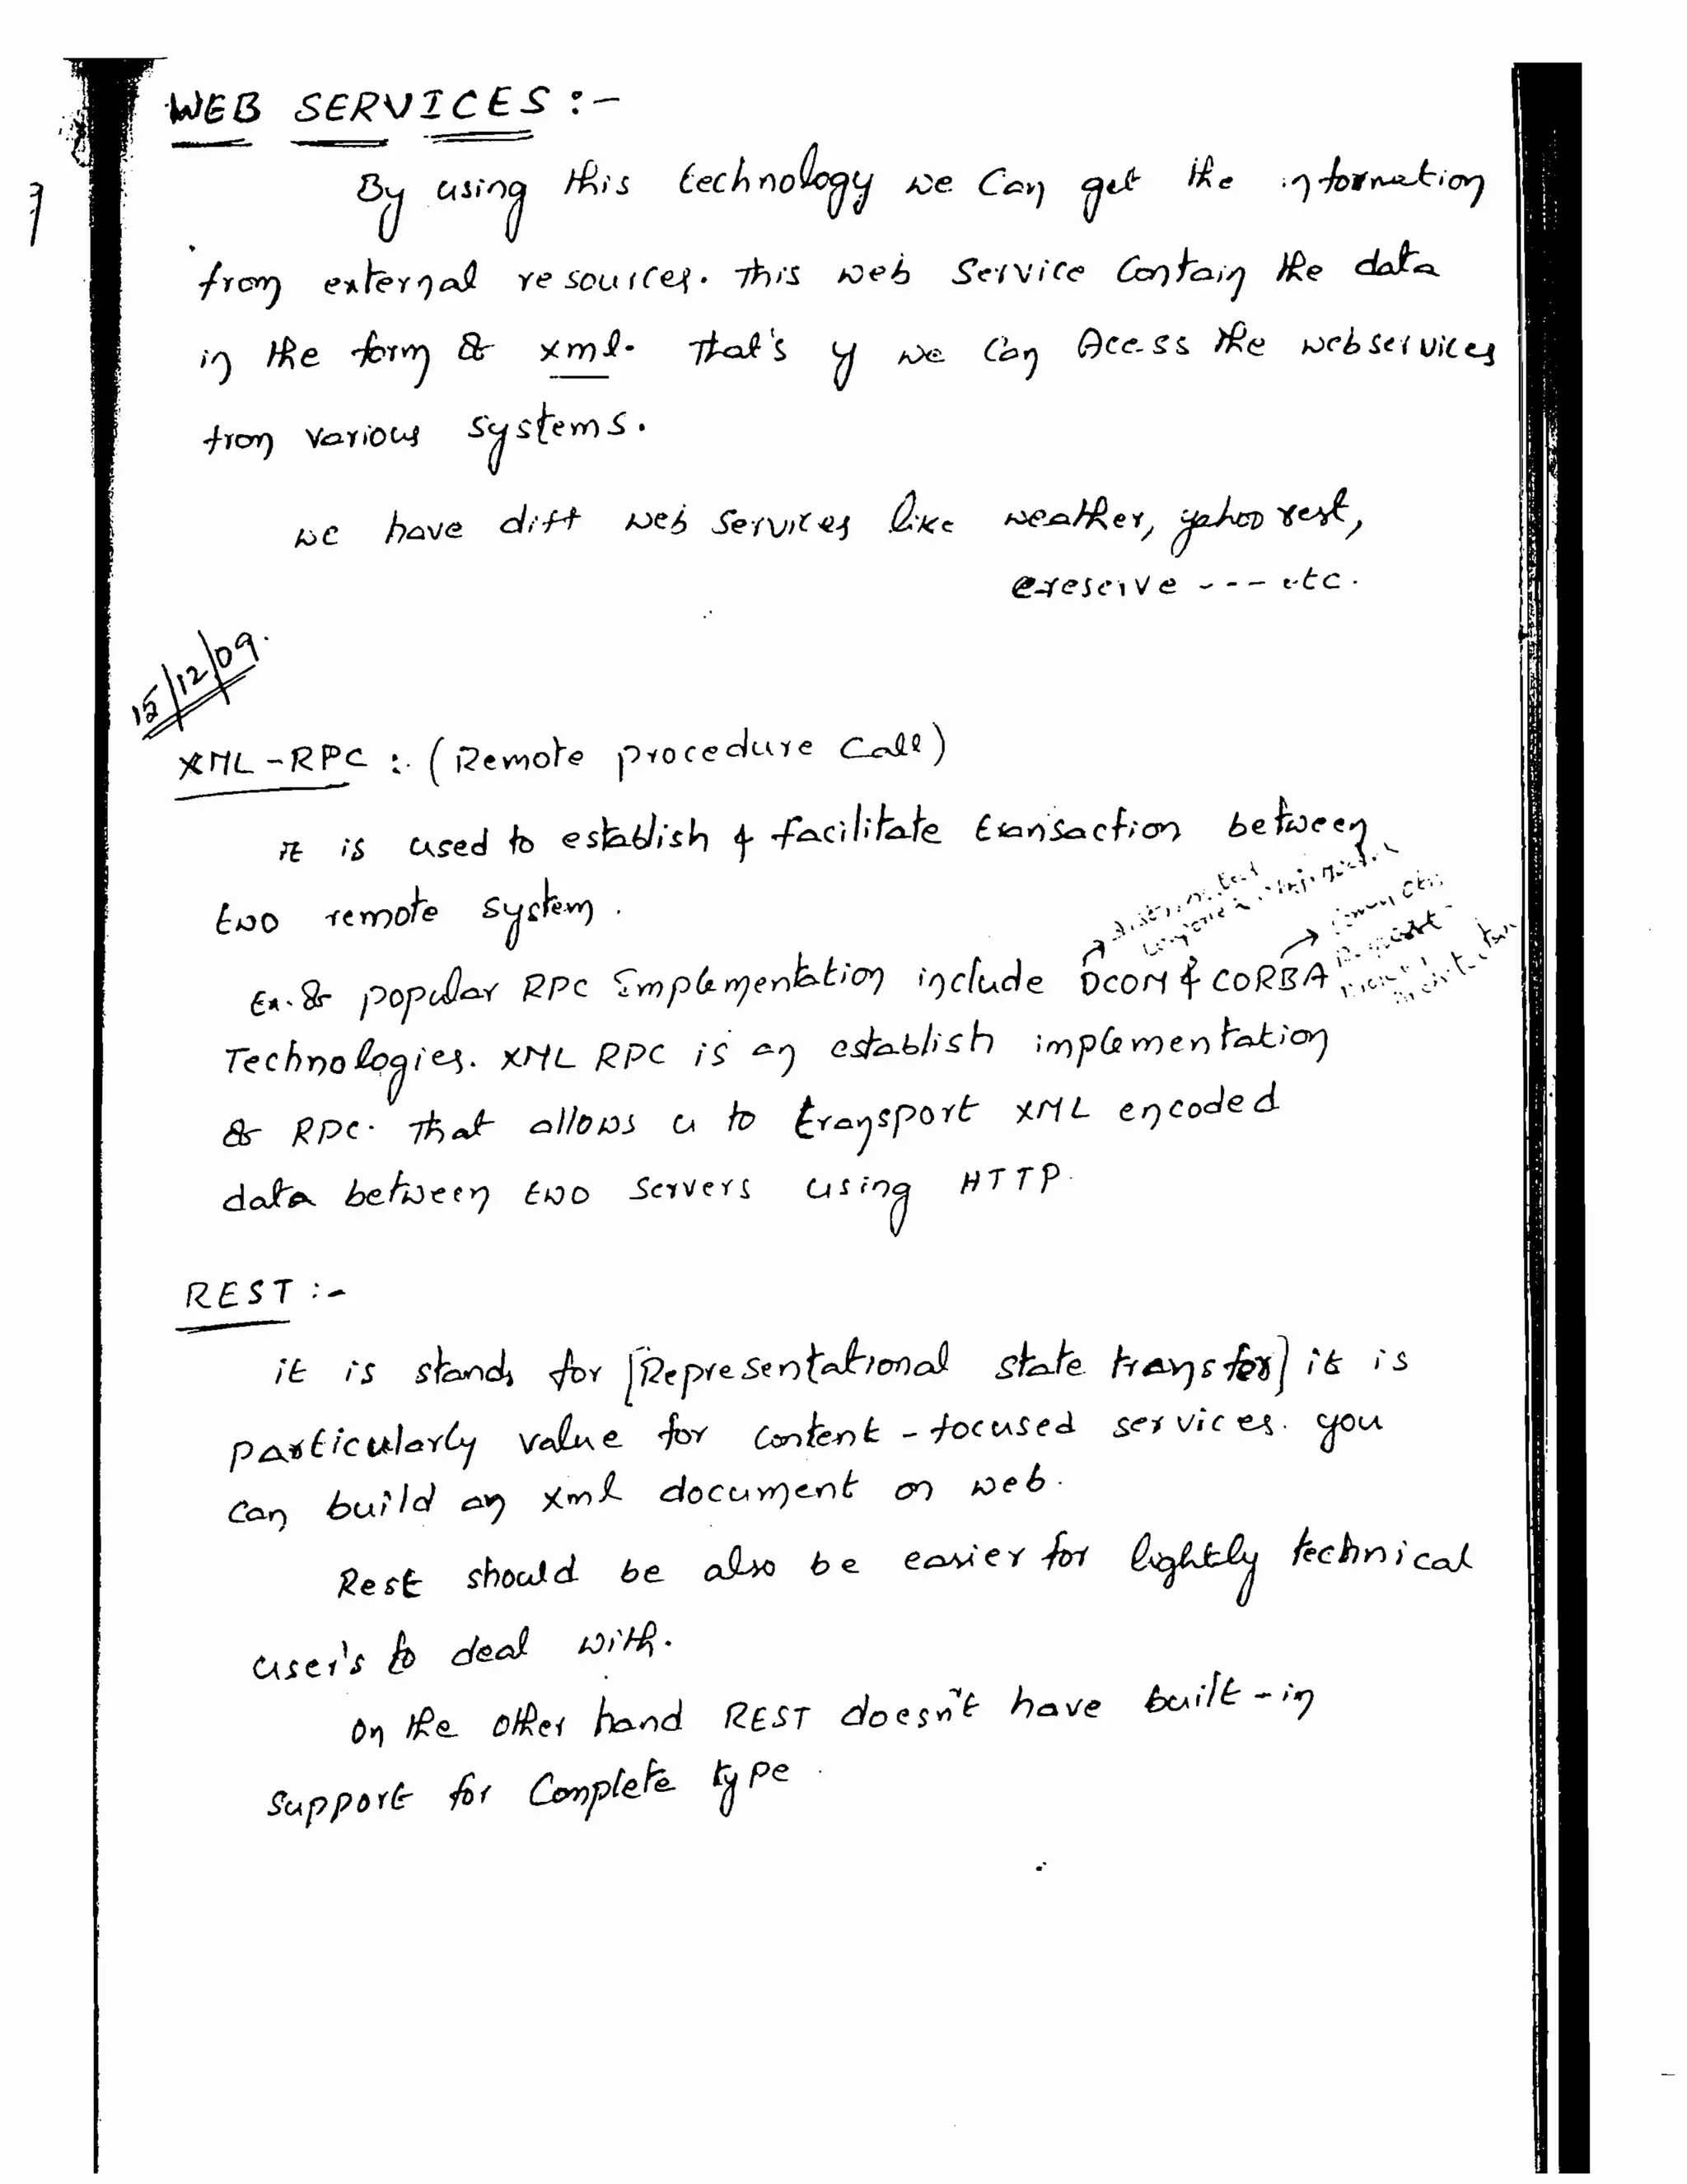 WEB SERVICES :-
By using this technology we can get the information
from external resources. This web service contain the data
in the form of xml. That's y we can Access the webservices
from various systems.
we have diff web services like weather, yahoo rest,
e-reserve --- etc.
15/12/09.
XML-RPC :- (Remote procedure call)
it is used to establish & facilitate transaction between
two remote system.
Distributed
Ex. of popular RPC Implementation include DCOM & CORBA
Technologies. XML RPC is an establish implementation
of RPC. That allows u to transport XML encoded
data between two servers using HTTP.
REST :-
it is stands for [Representational state transfer] it is
particularly value for content-focused services. you
can build an xml document on web.
Rest should be also be easier for lightly technical
user's to deal with.
On the other hand REST doesn't have built-in
support for Complete type.